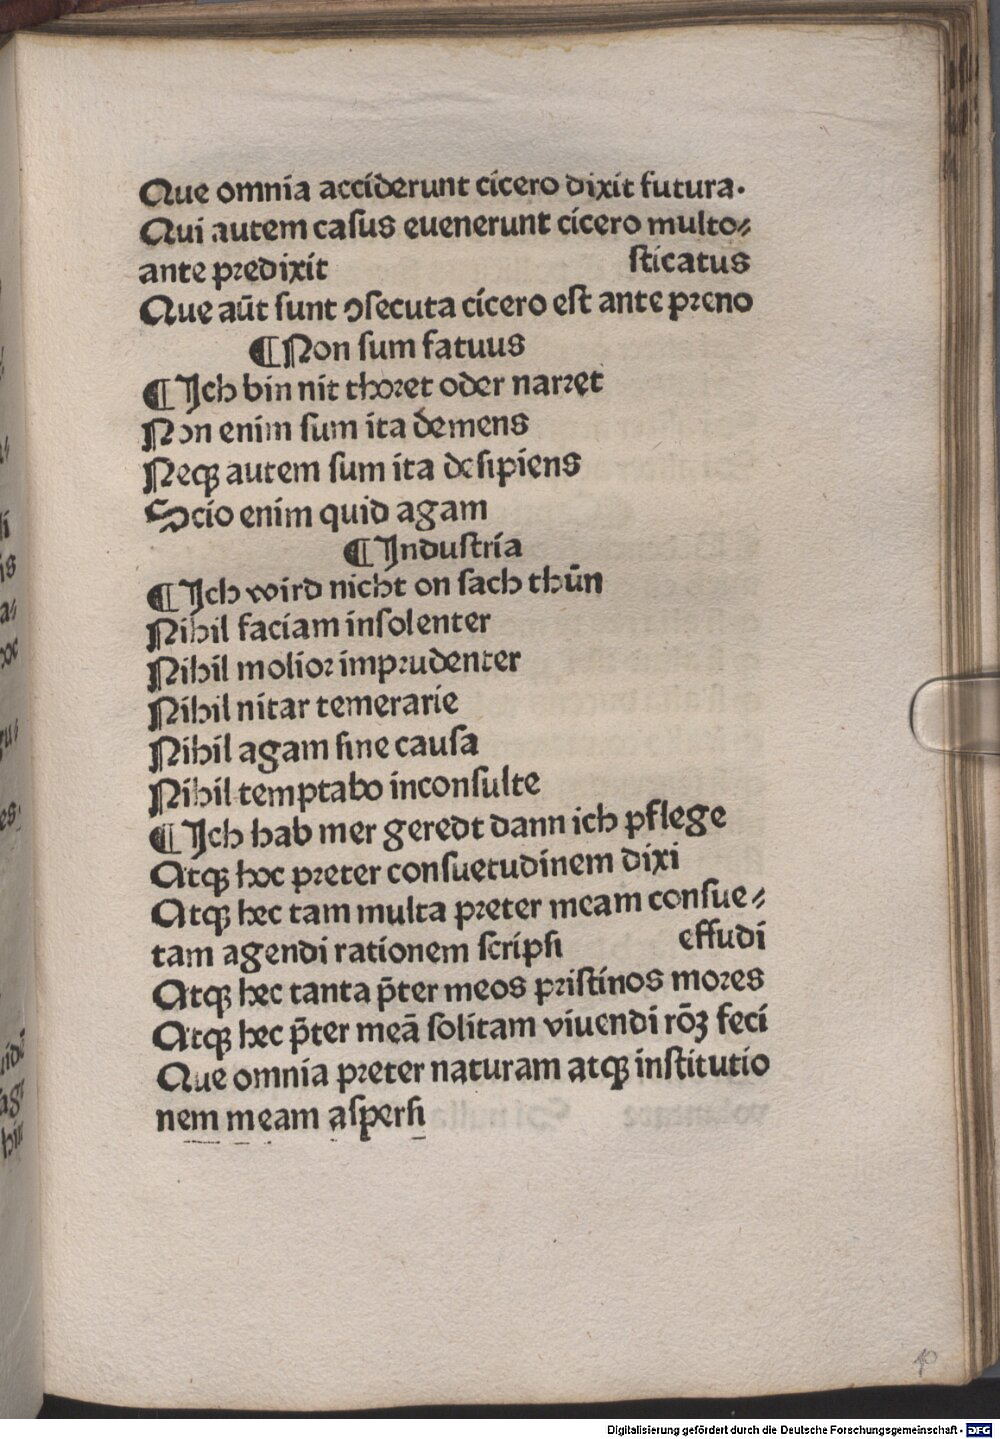 Que omnia acciderunt cicero dixit futura.
Qui autem casus euenerunt cicero multo⸗
ante predixit
sticatus
Que aūt sunt ↄsecuta cicero est ante preno
¶Non sum fatuus
¶Ich bin nit thoret oder narret
Non enim sum ita demens
Neqꝫ autem sum ita desipiens
Scio enim quid agam
¶Industria
¶Ich wird nicht on sach thūn
Nihil faciam insolenter
Nihil molior imprudenter
Nihil nitar temerarie
Nihil agam sine causa
Nihil temptabo inconsulte
¶Ich hab mer geredt dann ich pflege
Atqꝫ hoc preter consuetudinem dixi
Atqꝫ hec tam multa preter meam consue⸗
tam agendi rationem scripsi
effudi
Atqꝫ hec tanta p̄ter meos pristinos mores
Atqꝫ hec p̄ter meā solitam viuendi rōꝫ feci
Que omnia preter naturam atqꝫ institutio
nem meam aspersi
Digitalisierung gefördert durch die Deutsche Forschungsgemeinschaft - DFG